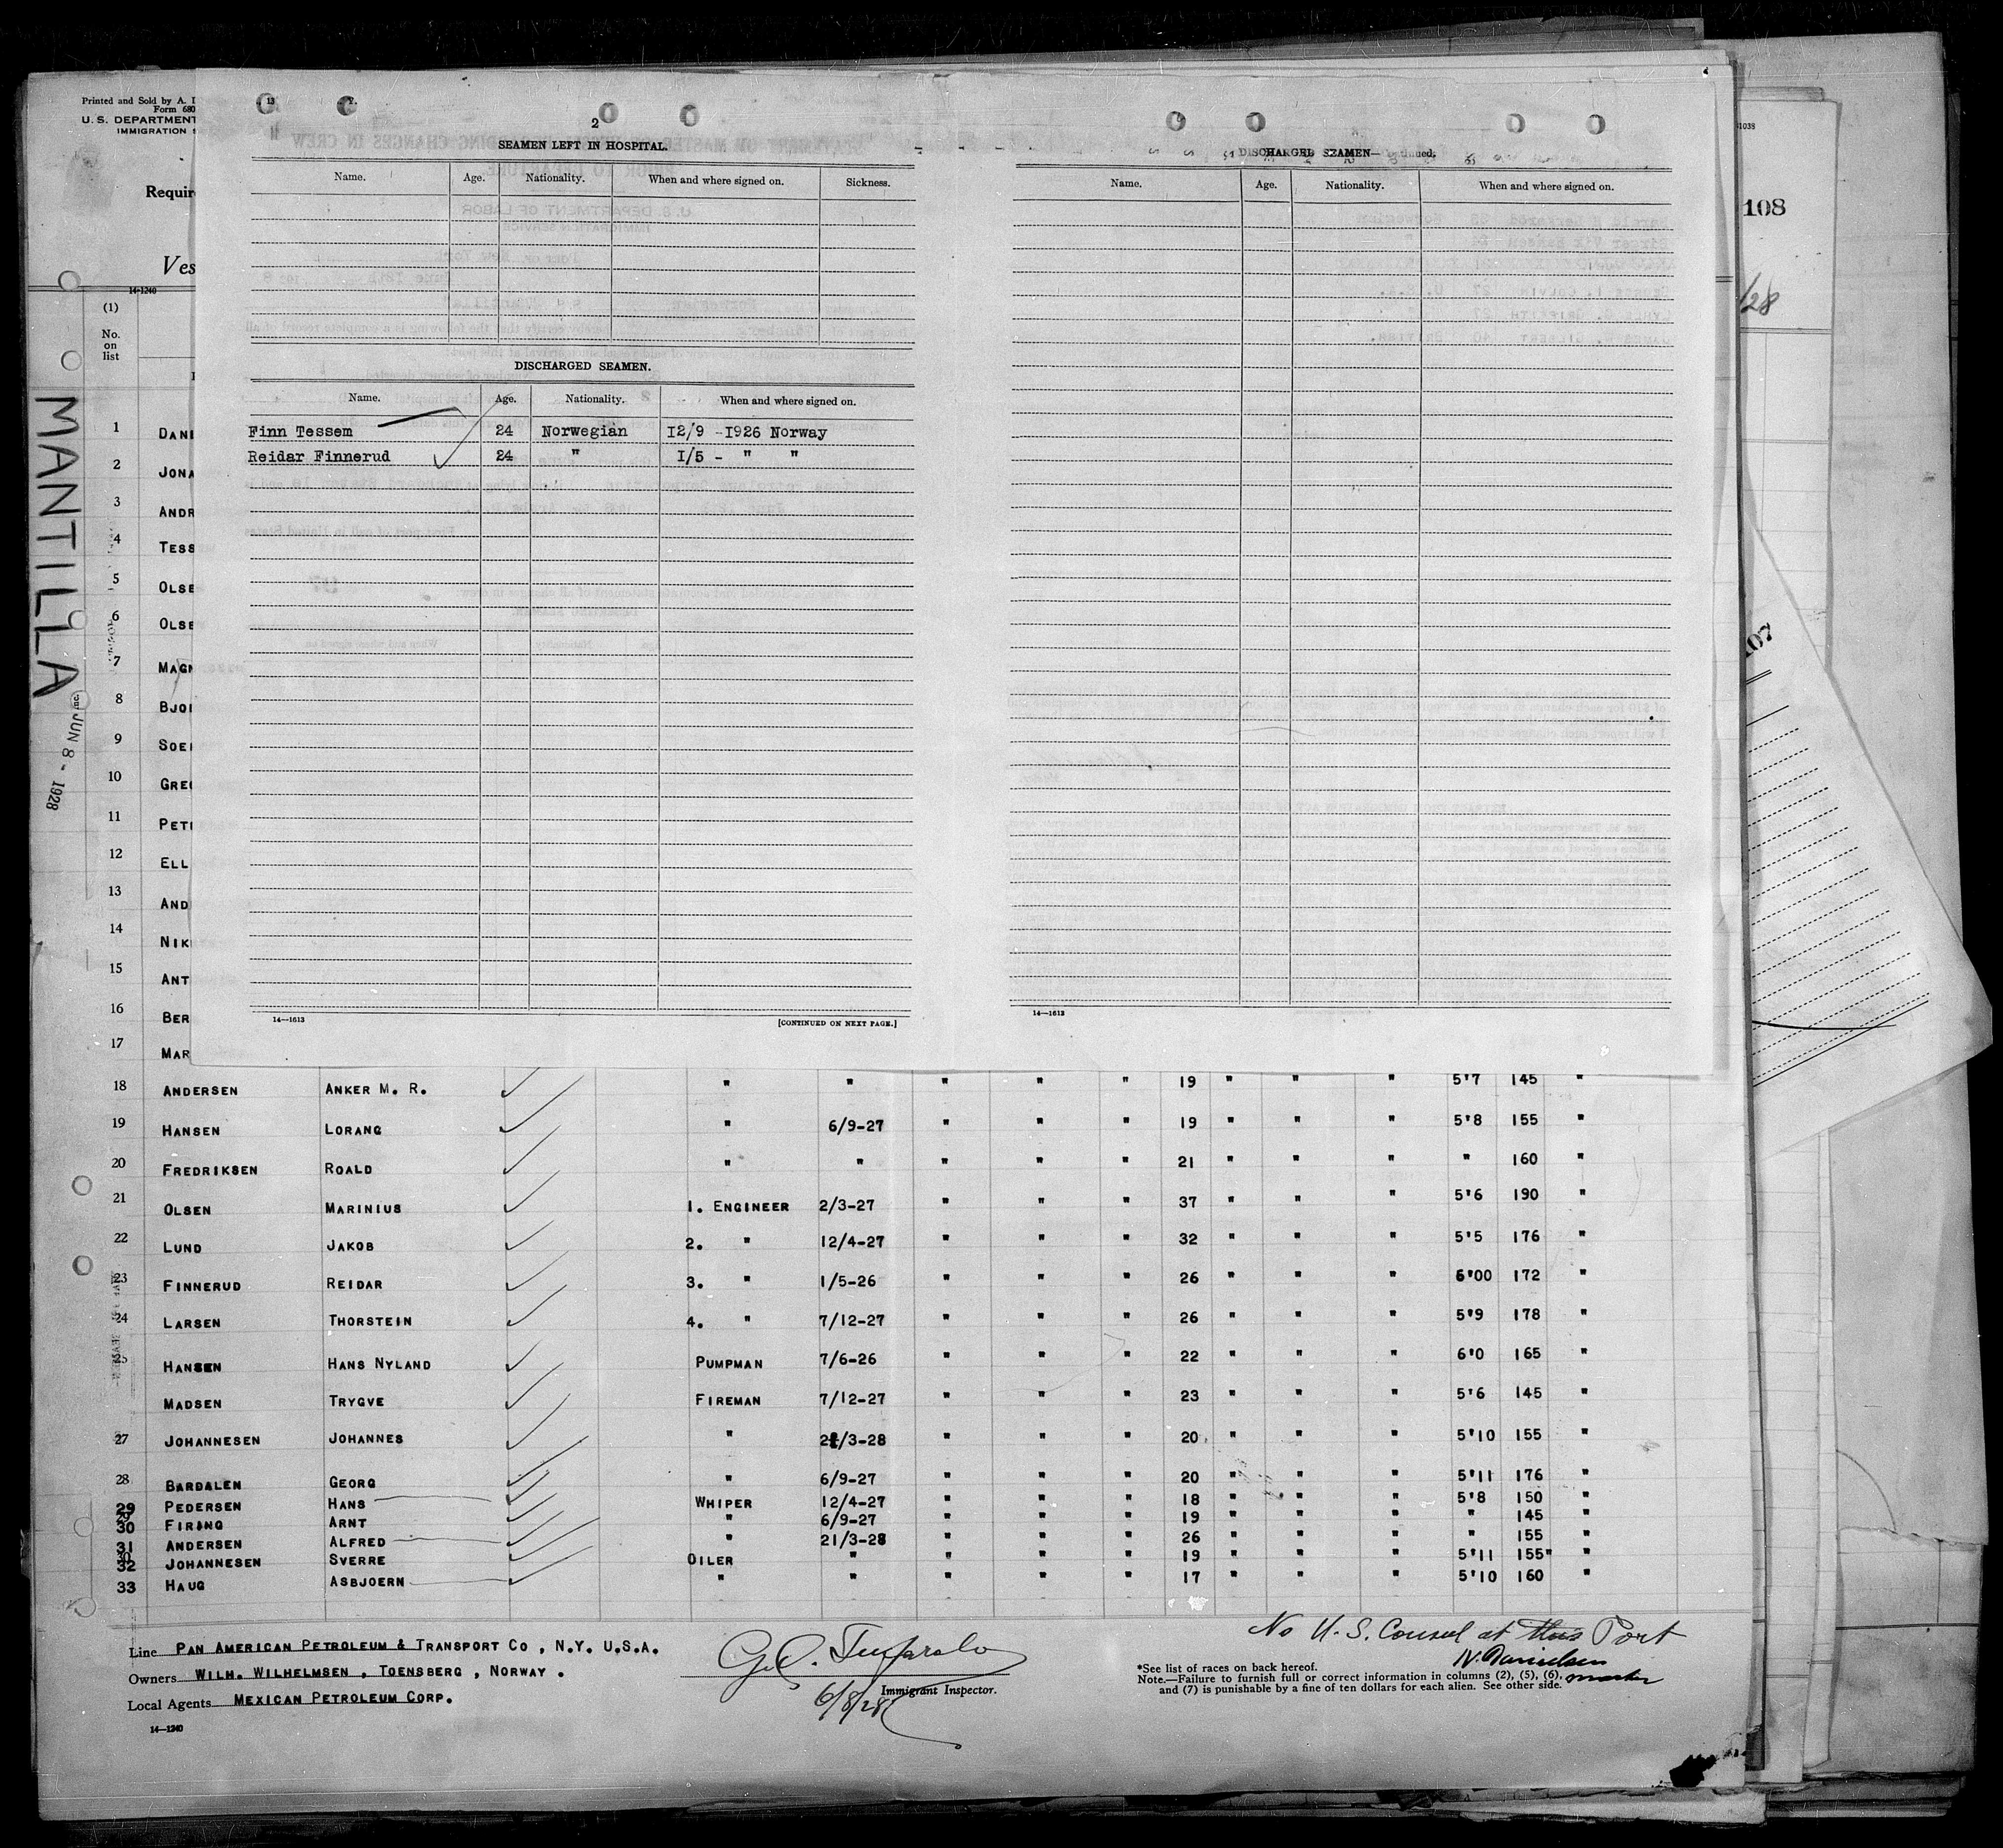 Printed and Sold by A.
Form 680
U. S. DEPARTMENT
IMMIGRATION
Requir
Ves
14-1240
(1)
No.
on
list
MANTILLA
JUN 8 - 1928
1 DANI
2 JONA
3 ANDR
4 TESS
5 OLSE
6 OLSE
7 MAGN
8 BJO
9 SOE
10 GRE
11 PET
12 ELL
13 AND
14 NIK
15 ANT
16 BER
17 MAR
13
2
SEAMEN LEFT IN HOSPITAL.
Name. Age. Nationality. When and where signed on. Sickness.
DISCHARGED SEAMEN.
Name. Age. Nationality. When and where signed on.
Finn Tessem 24 Norwegian 12/9 -1926 Norway
Reidar Finnerud 24 " 1/5 - " "
14—1613 [CONTINUED ON NEXT PAGE.]
DISCHARGED SEAMEN—Continued.
Name. Age. Nationality. When and where signed on.
14—1613
41038
108
/28
107
18 ANDERSEN ANKER M. R. " " " " " 19 " " " 5'7 145 "
19 HANSEN LORANG " 6/9-27 " " " 19 " " " 5'8 155 "
20 FREDRIKSEN ROALD " " " " " 21 " " " " 160 "
21 OLSEN MARINIUS 1. ENGINEER 2/3-27 " " " 37 " " " 5'6 190 "
22 LUND JAKOB 2. " 12/4-27 " " " 32 " " " 5'5 176 "
23 FINNERUD REIDAR 3. " 1/5-26 " " " 26 " " " 6'00 172 "
24 LARSEN THORSTEIN 4. " 7/12-27 " " " 26 " " " 5'9 178 "
25 HANSEN HANS NYLAND PUMPMAN 7/6-26 " " " 22 " " " 6'0 165 "
MADSEN TRYGVE FIREMAN 7/12-27 " " " 23 " " " 5'6 145 "
27 JOHANNESEN JOHANNES " /3-28 " " " 20 " " " 5'10 155 "
28 BARDALEN GEORG " 6/9-27 " " " 20 " " " 5'11 176 "
29 PEDERSEN HANS WHIPER 12/4-27 " " " 18 " " " 5'8 150 "
30 FIRING ARNT " 6/9-27 " " " 19 " " " " 145 "
31 ANDERSEN ALFRED " 21/3-28 " " " 26 " " " " 155 "
32 JOHANNESEN SVERRE OILER " " " " 19 " " " 5'11 155" "
33 HAUG ASBJOERN " " " " " 17 " " " 5'10 160 "
Line PAN AMERICAN PETROLEUM & TRANSPORT CO , N.Y. U.S.A.
Owners WILH. WILHELMSEN , TOENSBERG , NORWAY .
Local Agents MEXICAN PETROLEUM CORP.
14—1240
Immigrant Inspector.
6/8/28
No U.S. Consul at this Port
N. Danielsen
master
*See list of races on back hereof.
Note.—Failure to furnish full or correct information in columns (2), (5), (6),
and (7) is punishable by a fine of ten dollars for each alien. See other side.